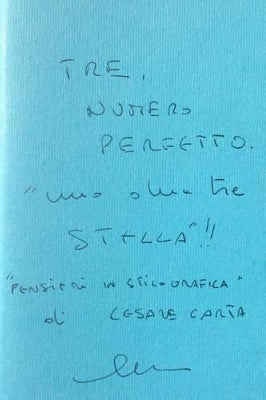 TRE,
NUMERO
PERFETTO.
"uno due tre
STELLA"!!
"PENSIERI IN STILOGRAFICA"
di CESARE CARTA